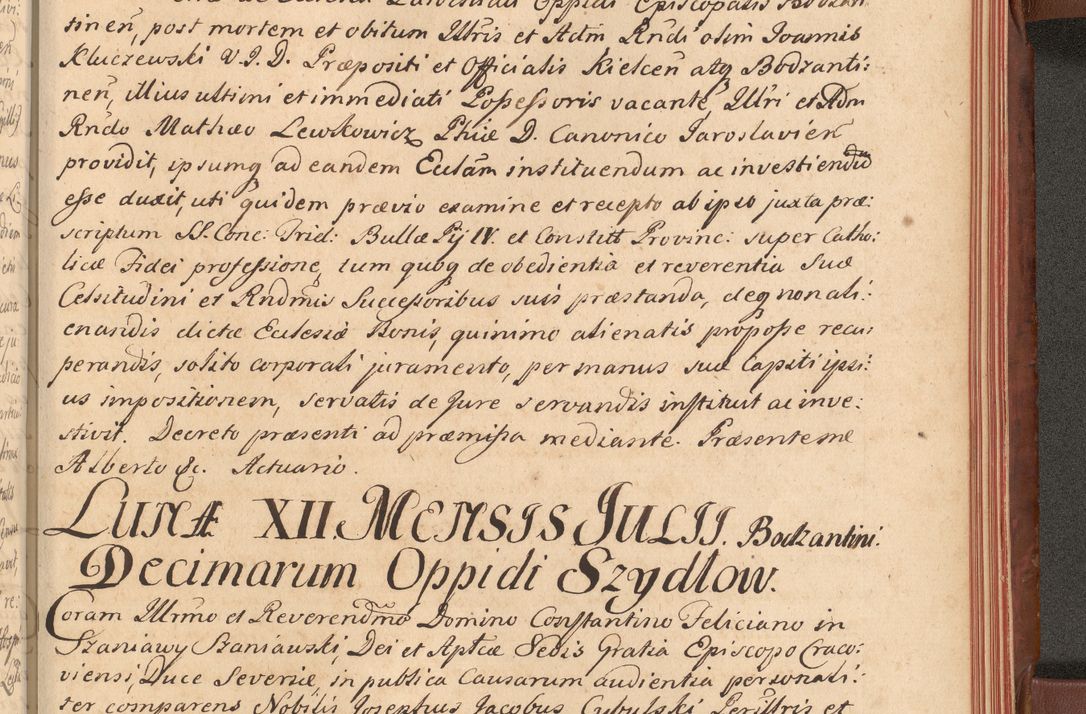 tinen, post mortem et obitum Illris et Adm Rndi olim Joannis
Kluczewski V. J. D. Præpositi et Officialis Kielcen atq Bodzanti:
nen, illius ultimi et immediati Possessoris vacante, Illri et Adm
Rndo Mathæo Lewkowicz Phiæ D. Canonico Jaroslavien
providit, ipsumq ad eandem Ecclam instituendum ac investiendū
esse duxit, uti quidem prævio examine et recepto ab ipso juxta præ:
scriptum SS. Conc: Trid: Bullæ Pij IV. et Constitt Provinc: super Catho:
licæ Fidei professione, tum quoq de obedientia et reverentia Suæ
Celsitudini et Rndmis Successoribus suis præstanda, deq non ali:
enandis dictæ Ecclesiæ Bonis, quinimo alienatis pro posse recu:
perandis, solito corporali juramento, per manus suæ Capiti ipsi:
us impositionem, servatis de Jure servandis instituit ac inve:
stivit. Decreto præsenti ad præmissa mediante. Præsente me
Alberto &c. Actuario.
LUNÆ XII. MENSIS JULII. Bodzantini.
Decimarum Oppidi Szydlow.
Coram Illrmo et Reverendmo Domino Constantino Feliciano in
Szaniawy Szaniawski, Dei et Aptcæ Sedis Gratia Episcopo Craco:
viensi, Duce Severiæ, in publica Causarum audientia personali:
ter comparens Nobilis Josephus Jacobus Cybulski Perillris et